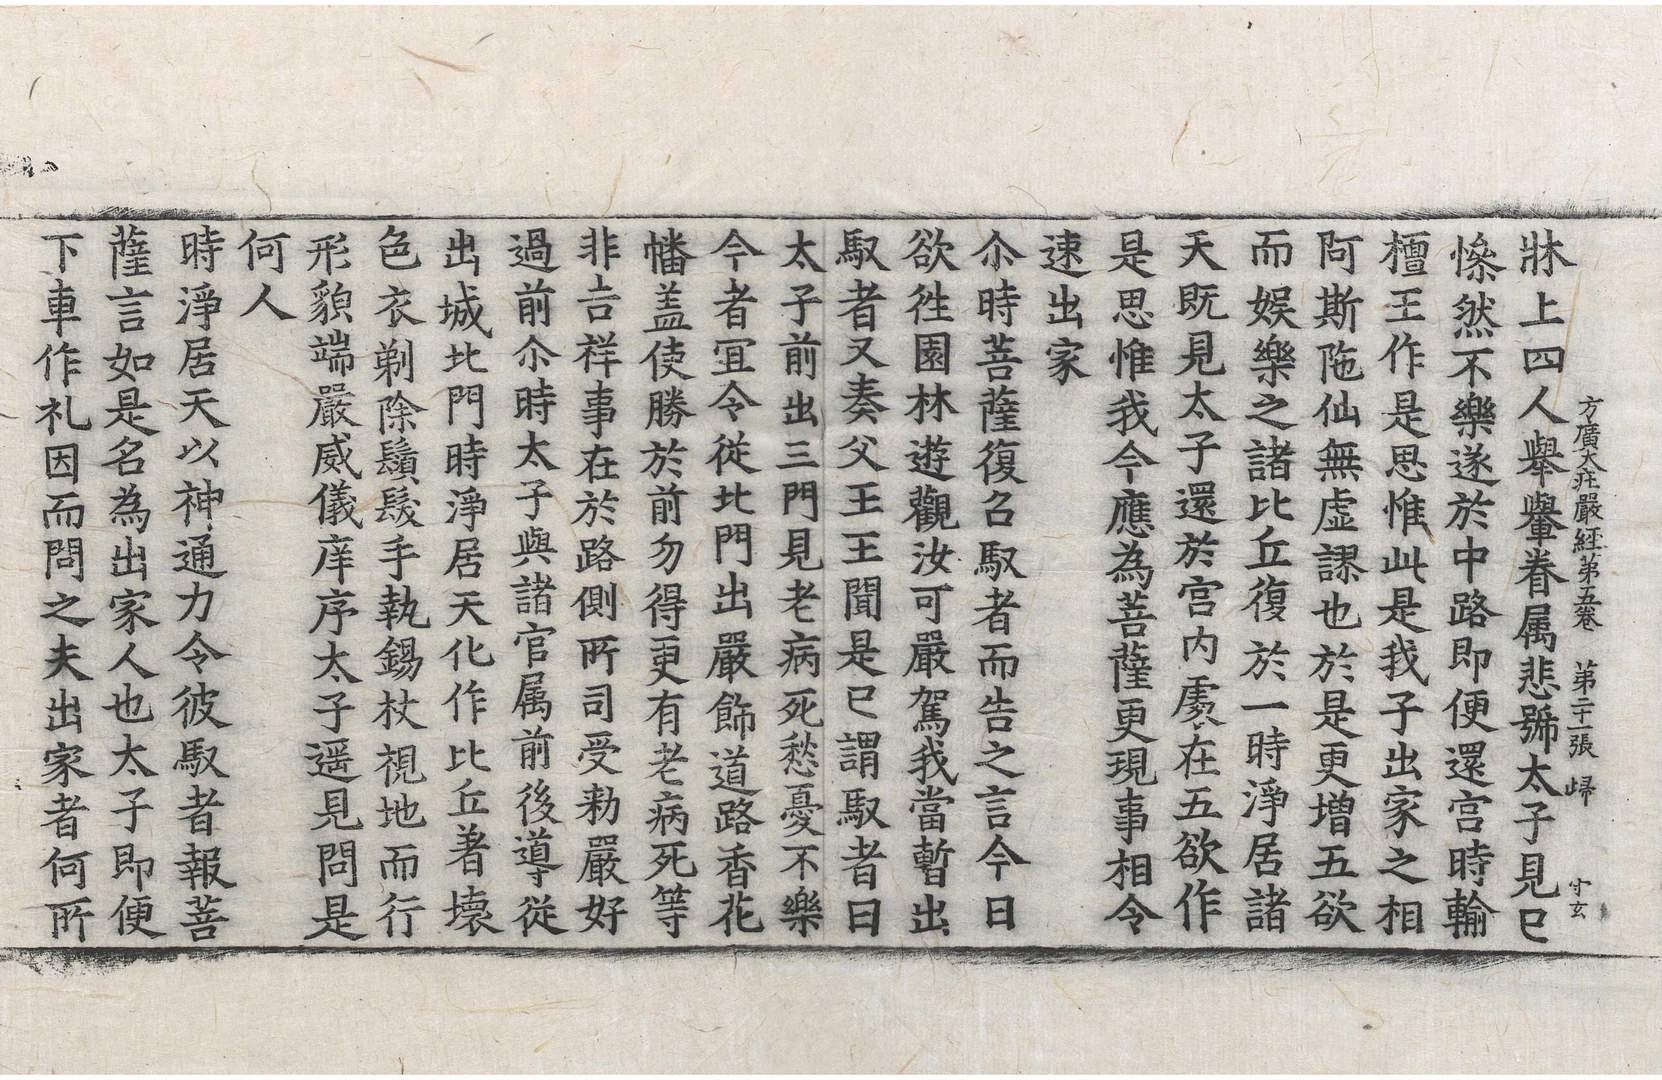 方廣大庄嚴経第五卷　第二十一張　歸　守玄
牀上四人舉轝眷属悲號太子見已
慘然不樂遂於中路即便還宫時輸
檀王作是思惟此是我子出家之相
阿斯陁仙無虚謬也於是更增五欲
而娱樂之諸比丘復於一時淨居諸
天既見太子還於宫内處在五欲作
是思惟我今應為菩薩更現事相令
速出家
尒時菩薩復召馭者而告之言今日
欲徃園林遊觀汝可嚴駕我當暫出
馭者又奏父王王聞是已謂馭者曰
太子前出三門見老病死愁憂不樂
今者冝令從北門出嚴飾道路香花
幡盖使勝於前勿得更有老病死等
非吉祥事在於路側所司受勑嚴好
過前尒時太子與諸官属前後導從
出城北門時淨居天化作比丘著壞
色衣剃除鬚髮手執錫杖視地而行
形貌端嚴威儀庠序太子遥見問是
何人
時淨居天以神通力令彼馭者報菩
薩言如是名為出家人也太子即便
下車作礼因而問之夫出家者何所